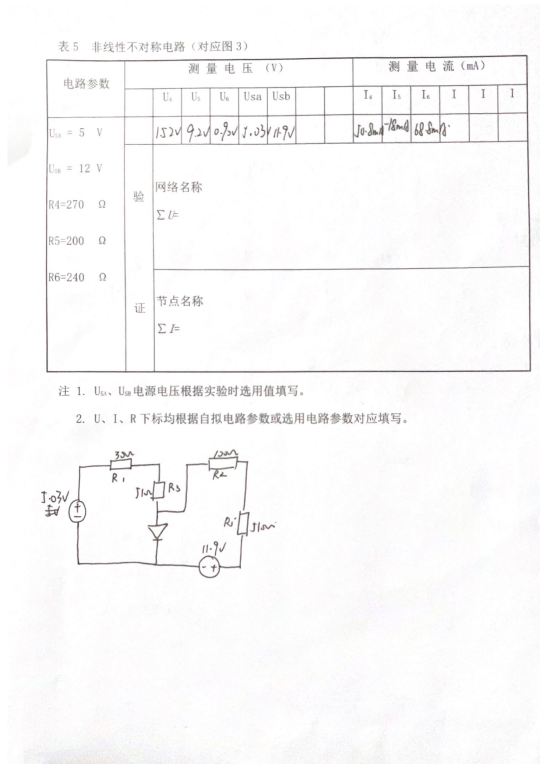 表 5 非线性不对称电路（对应图 3）
电路参数 测 量 电 压 （V） 测 量 电 流（mA）
U₄ U₅ U₆ Usa Usb I₄ I₅ I₆ I I I
U_SA = 5 V 1.52V 9.2V 0.90V 5.03V 11.9V 50.8mA -18mA 68.8mA
U_SB = 12 V
R4=270 Ω
R5=200 Ω
R6=240 Ω
验
网络名称
∑U=
证
节点名称
∑I=
注 1. U_SA、U_SB 电源电压根据实验时选用值填写。
2. U、I、R 下标均根据自拟电路参数或选用电路参数对应填写。
30Ω R₁
51Ω R₃
100Ω R₂
5.03V
51Ω
11.9V